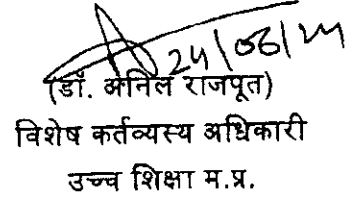 24/06/24
(डॉ. अनिल राजपूत)
विशेष कर्तव्यस्थ अधिकारी
उच्च शिक्षा म.प्र.